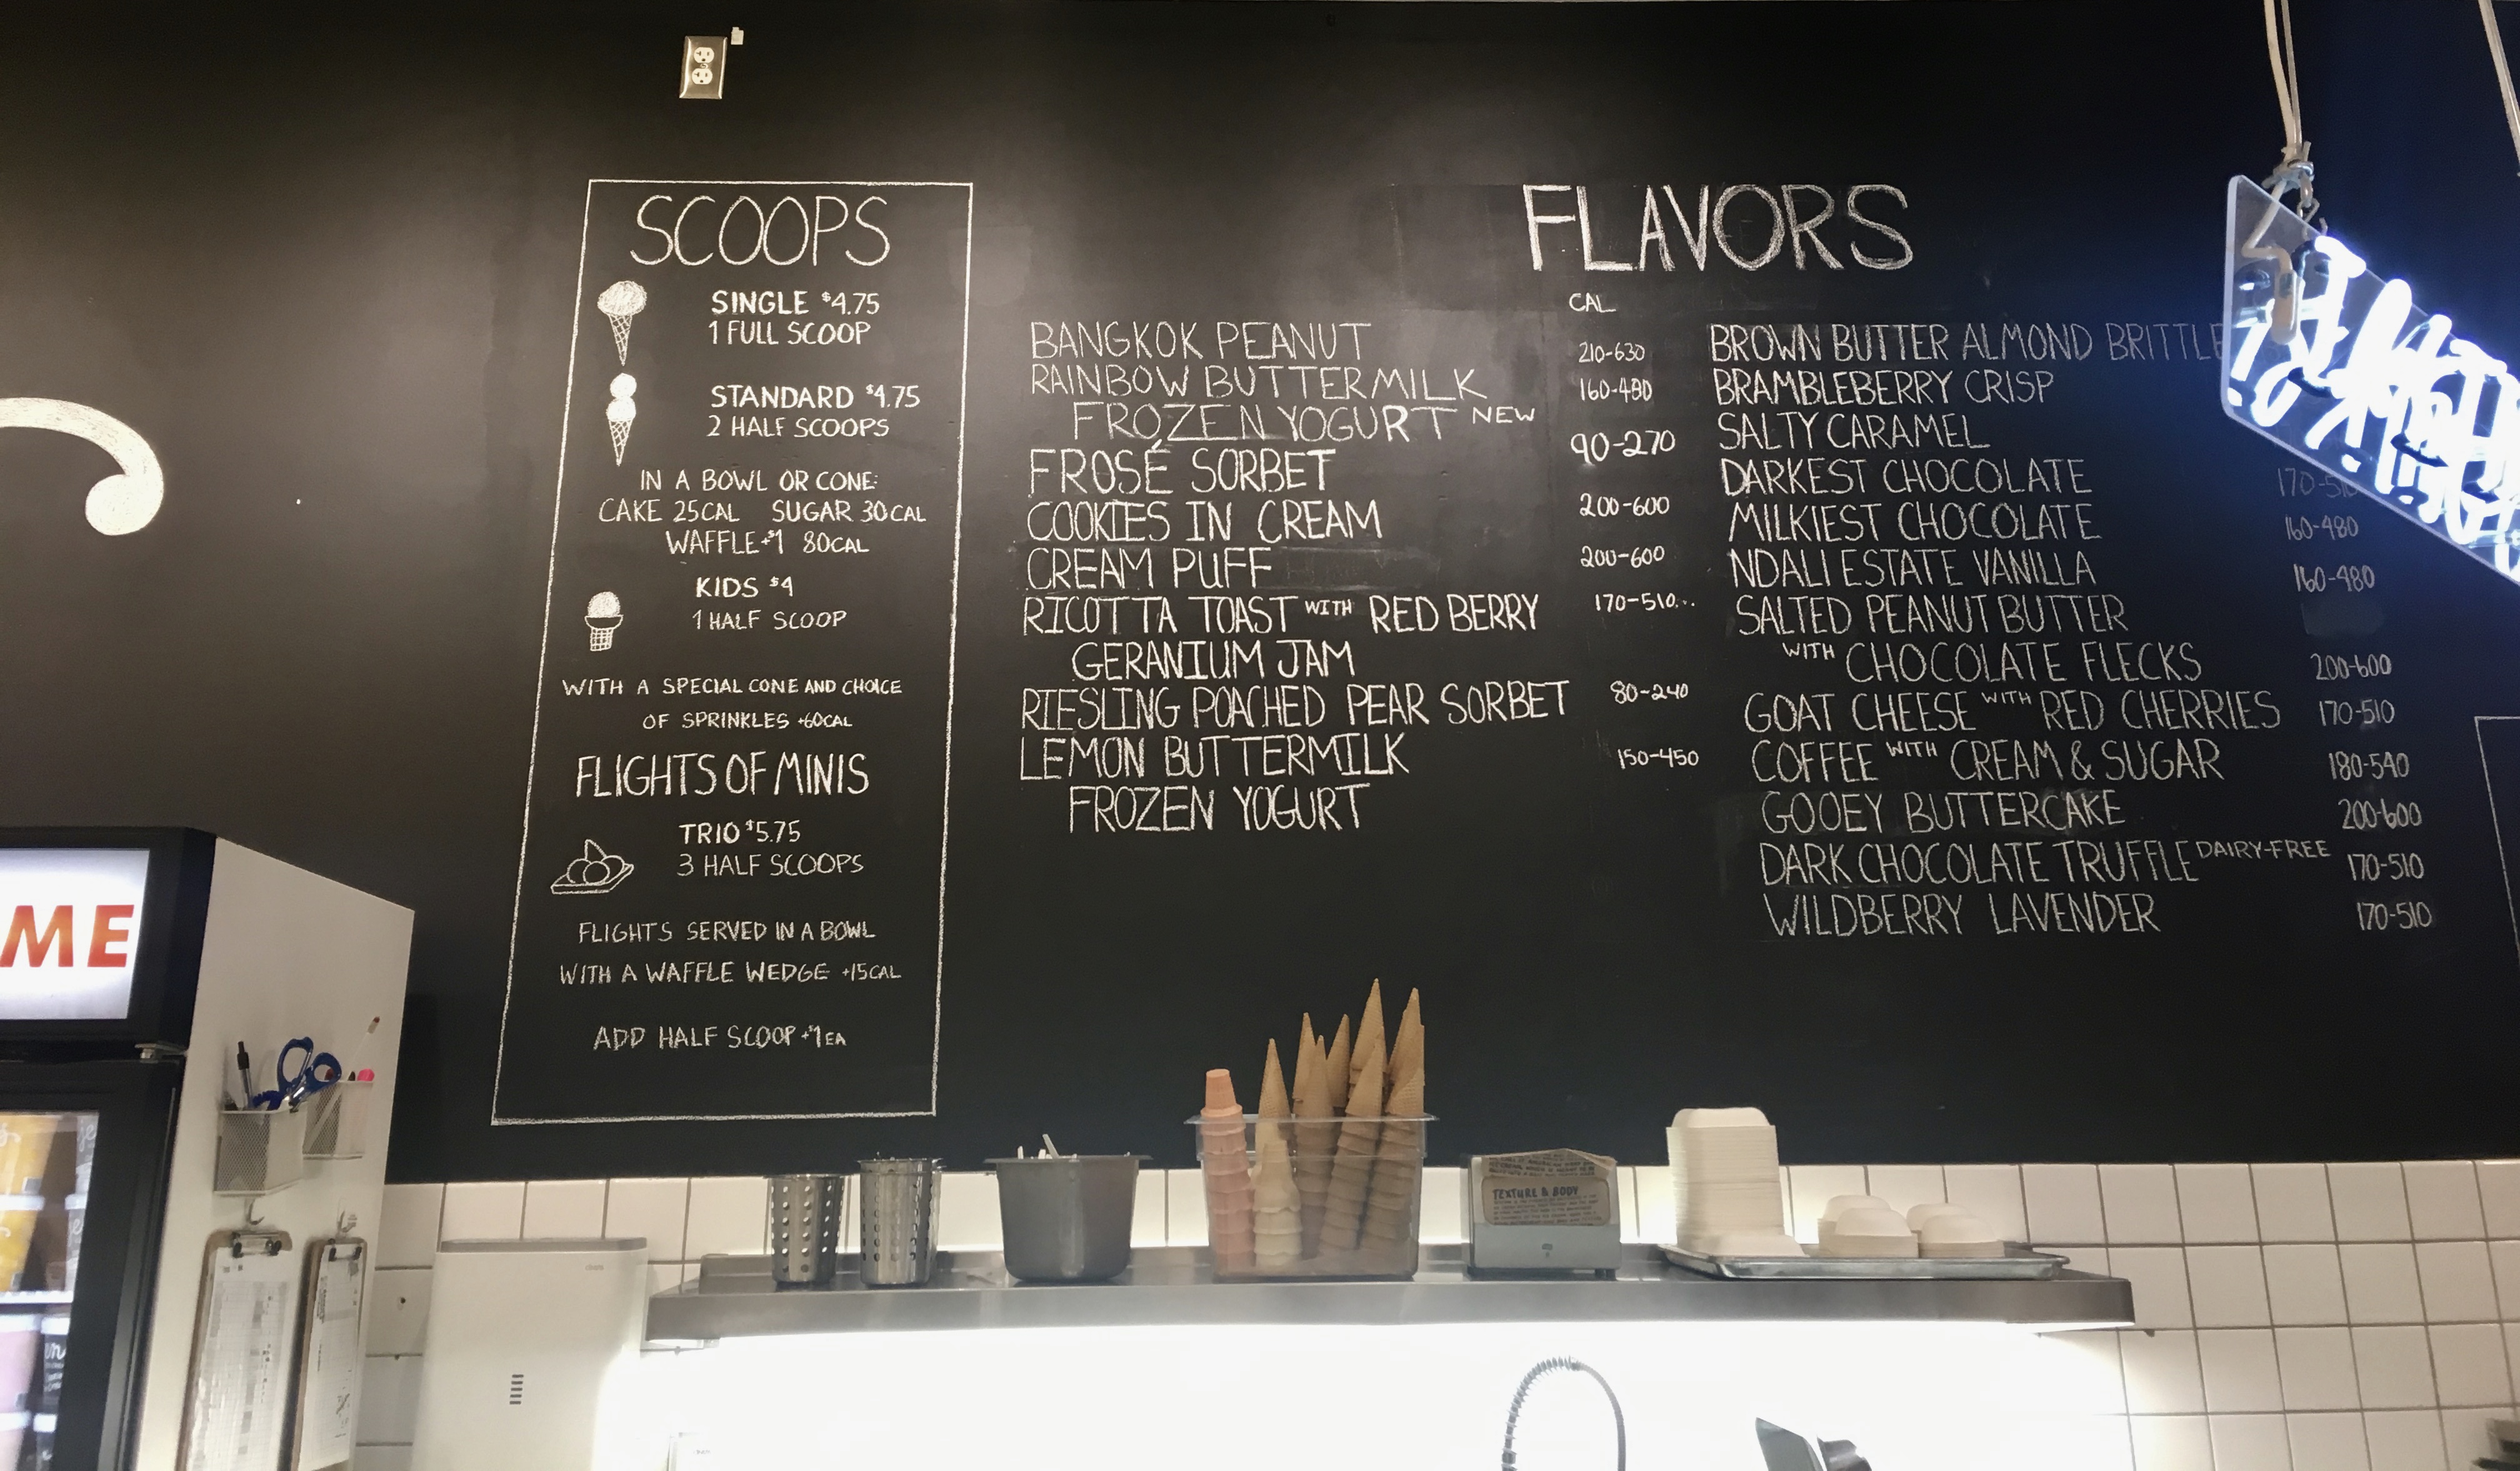 SCOOPS
SINGLE $4.75
1 FULL SCOOP
STANDARD $4.75
2 HALF SCOOPS
IN A BOWL OR CONE:
CAKE 25CAL SUGAR 30CAL
WAFFLE +$1 80CAL
KIDS $4
1 HALF SCOOP
WITH A SPECIAL CONE AND CHOICE
OF SPRINKLES +60CAL
FLIGHTS OF MINIS
TRIO $5.75
3 HALF SCOOPS
FLIGHTS SERVED IN A BOWL
WITH A WAFFLE WEDGE +15CAL
ADD HALF SCOOP +$1 EA
FLAVORS
CAL
BANGKOK PEANUT 210-630
RAINBOW BUTTERMILK 160-480
FROZEN YOGURT NEW
FROSÉ SORBET 90-270
COOKIES IN CREAM 200-600
CREAM PUFF 200-600
RICOTTA TOAST WITH RED BERRY 170-510...
GERANIUM JAM
RIESLING POACHED PEAR SORBET 80-240
LEMON BUTTERMILK 150-450
FROZEN YOGURT
BROWN BUTTER ALMOND BRITTLE
BRAMBLEBERRY CRISP
SALTY CARAMEL
DARKEST CHOCOLATE 170-510
MILKIEST CHOCOLATE 160-480
NDALI ESTATE VANILLA 160-480
SALTED PEANUT BUTTER
WITH CHOCOLATE FLECKS 200-600
GOAT CHEESE WITH RED CHERRIES 170-510
COFFEE WITH CREAM & SUGAR 180-540
GOOEY BUTTERCAKE 200-600
DARK CHOCOLATE TRUFFLE DAIRY-FREE 170-510
WILDBERRY LAVENDER 170-510
ME
TEXTURE & BODY